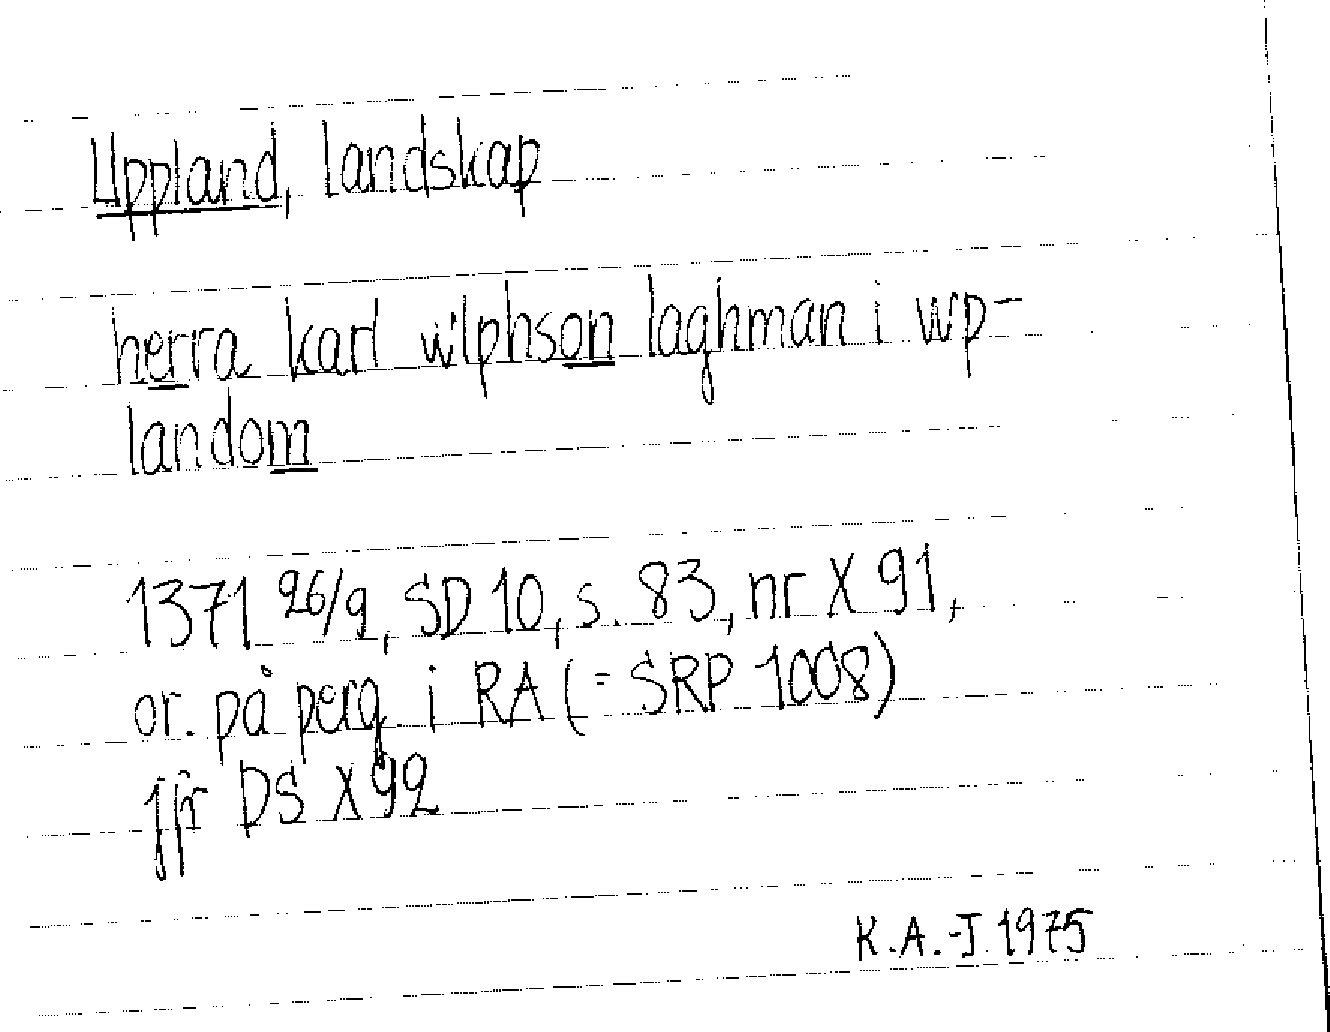 Uppland, landskap
herra karl wlphson laghman i wp-
landom
1371 26/9, SD 10, s. 83, nr X 91,
or. på perg i RA (= SRP 1008)
jfr DS X 92
K.A.-J. 1975